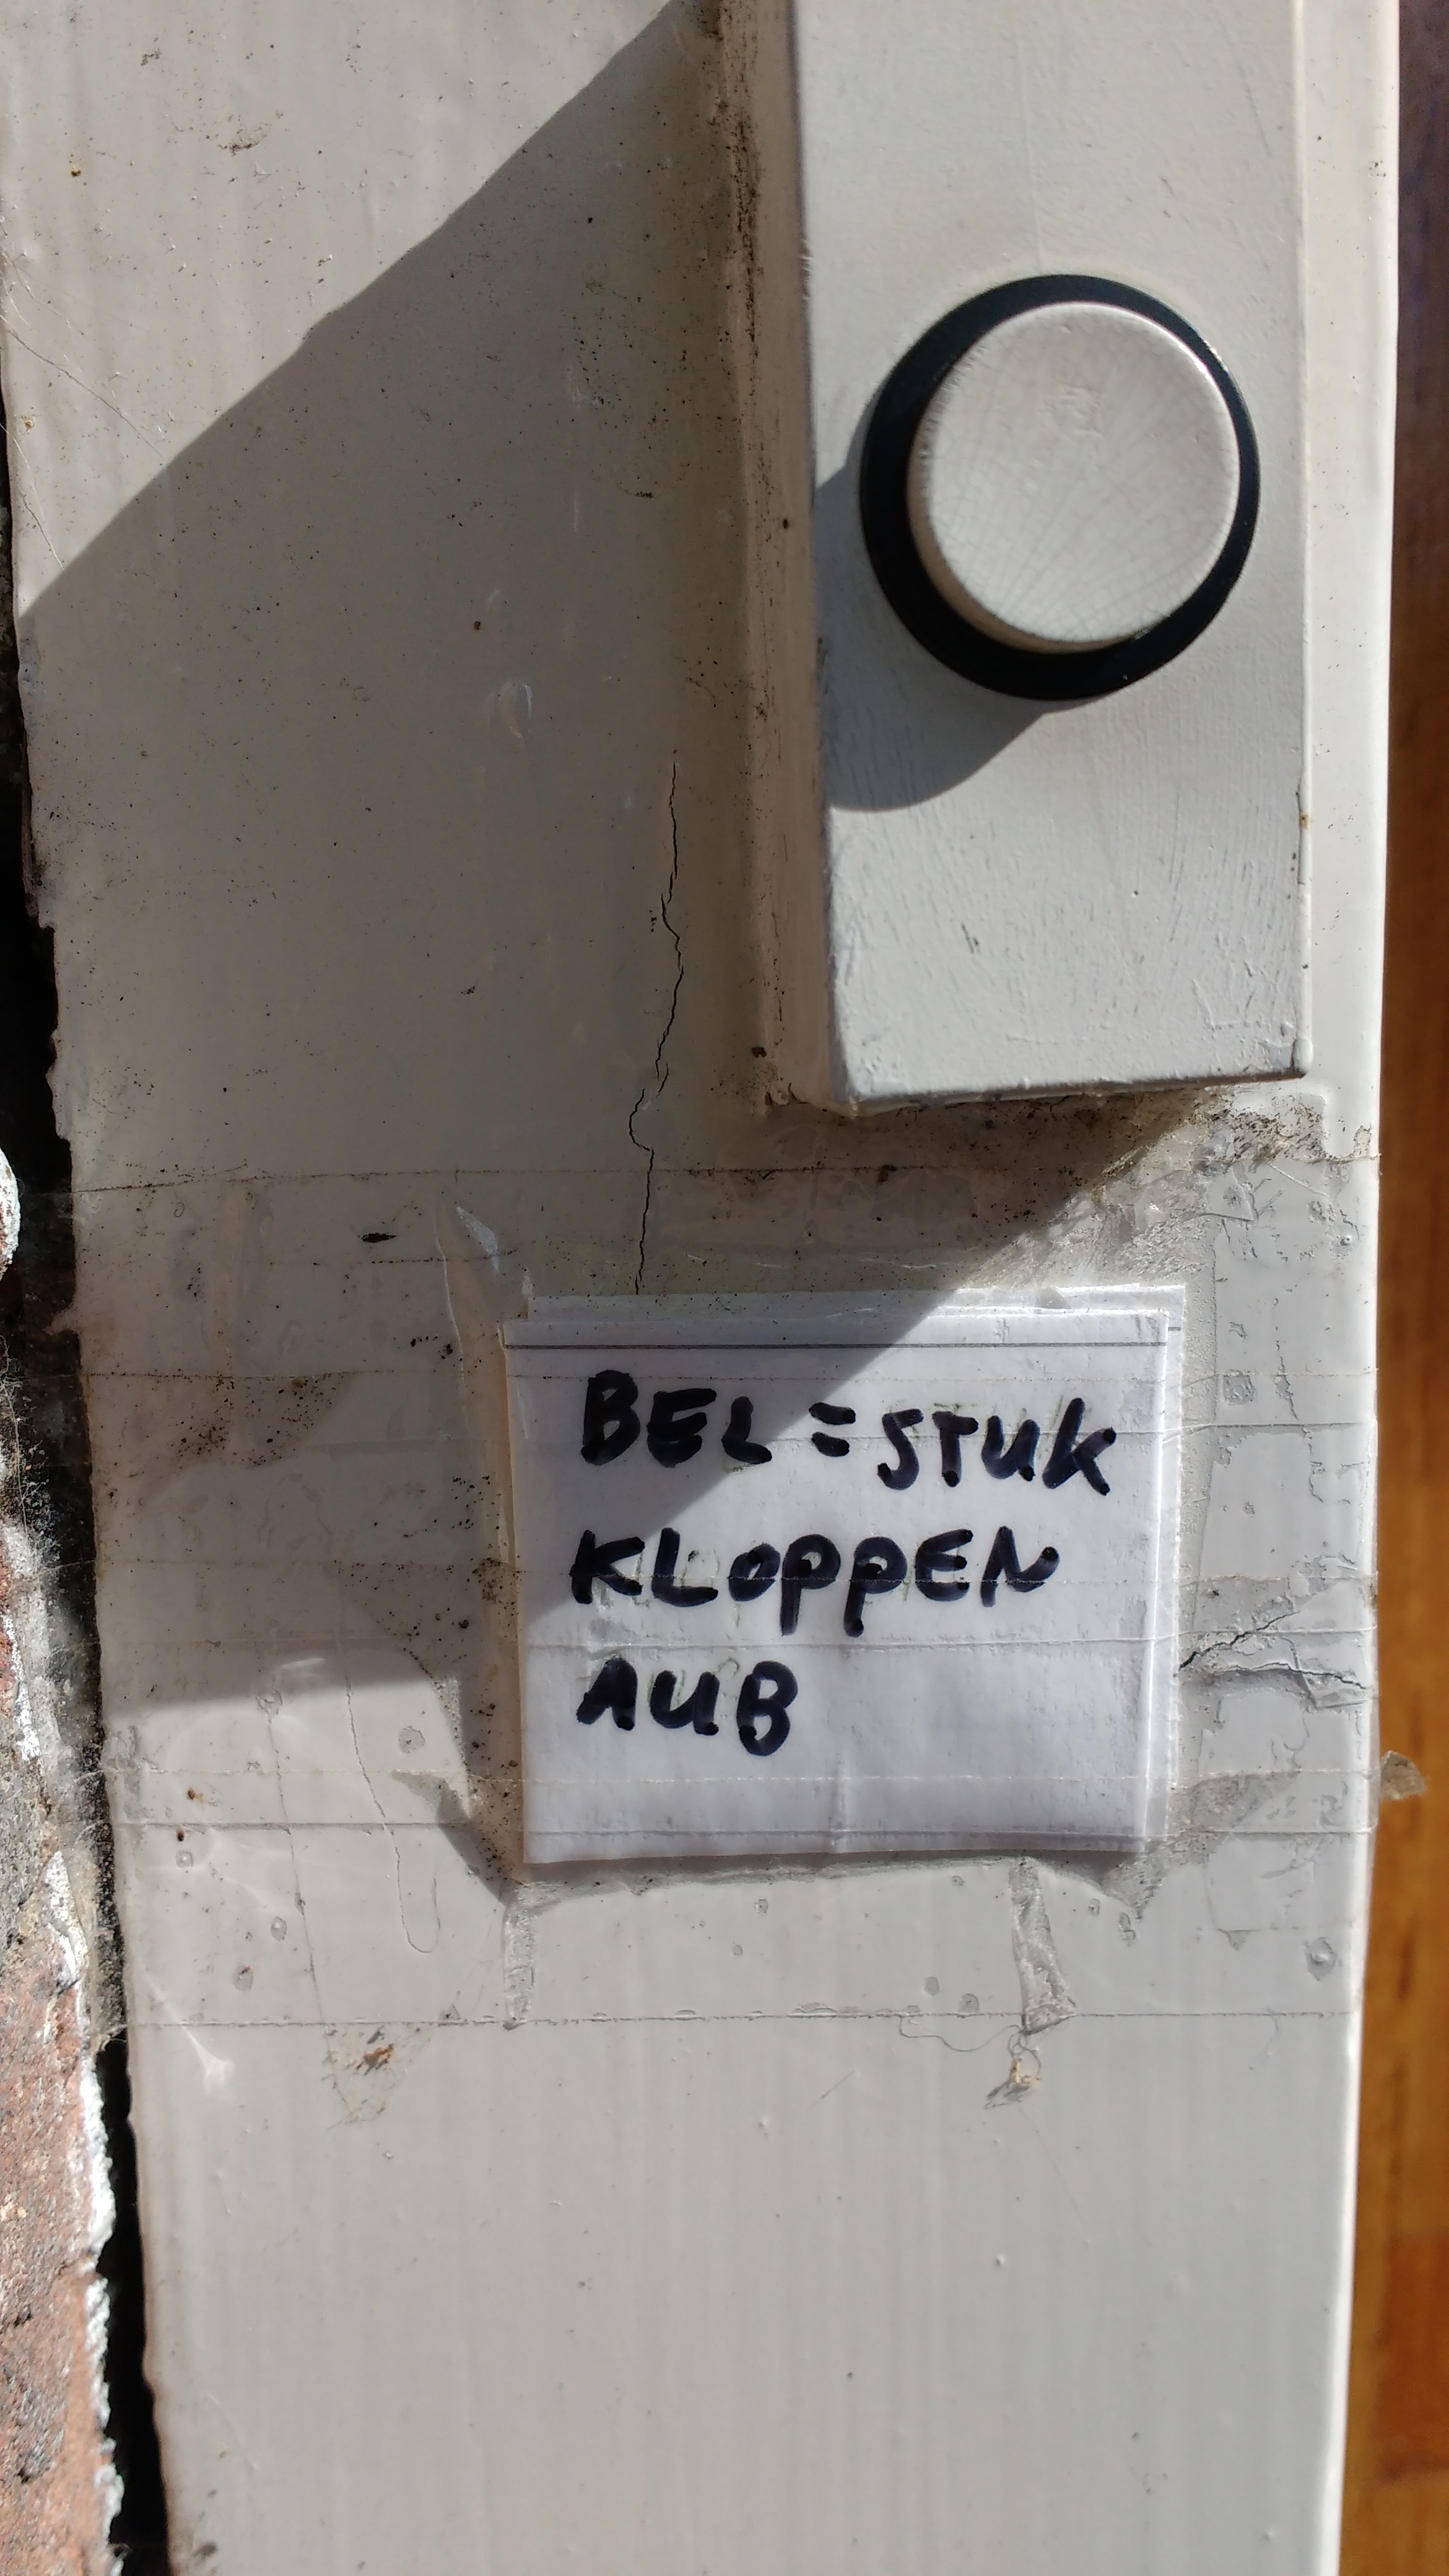 BEL = STUK
KLOPPEN
AUB